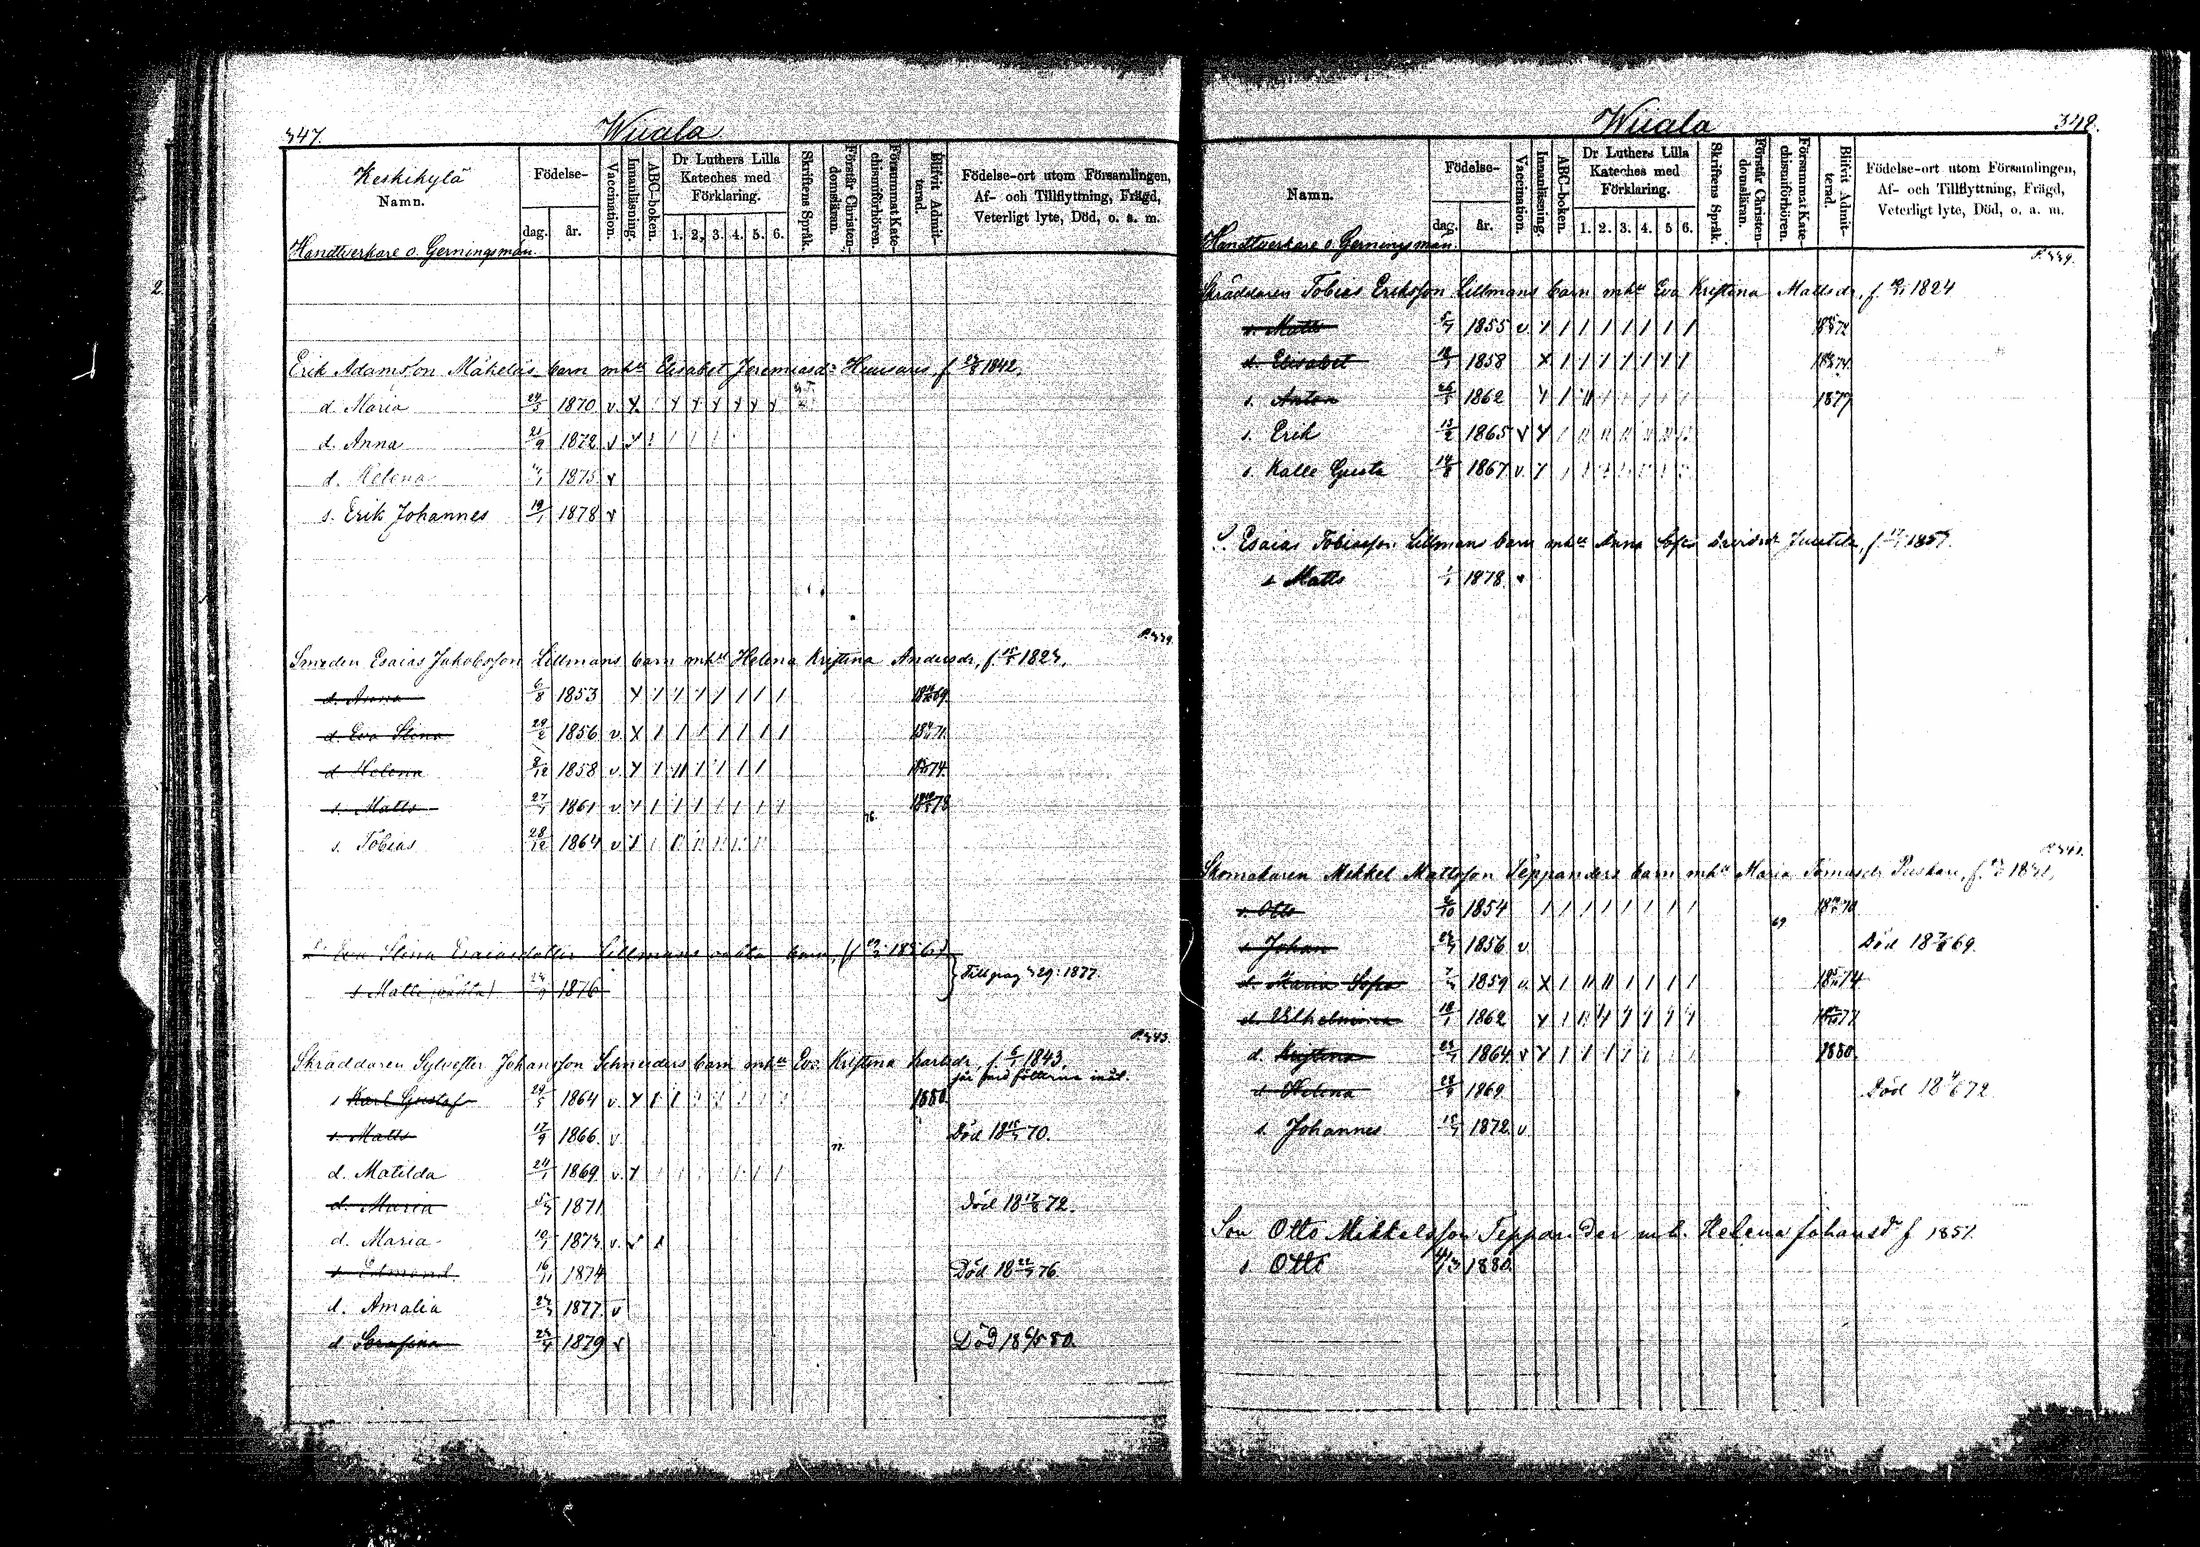 347.
Wiiala
Keskikylä
Namn.
Födelse-
dag.
år.
Vaccination.
Innanläsning.
ABC-boken.
Dr Luthers Lilla
Kateches med
Förklaring.
1. 2. 3. 4. 5. 6.
Skriftens Språk.
Förstår Christen-
domsläran.
Försummat Kate-
chismiförhören.
Blifvit Admit-
terad.
Födelse-ort utom Församlingen,
Af- och Tillflyttning, Frägd,
Veterligt lyte, Död, o. a. m.
Handtverkare o. Gerningsmän.
2
Erik Adamsson Mäkeläs barn mhu Elisabet Jeremiasdr Huusaris, f 1842,
d. Maria 1870 v.
d. Anna 21/9 1872
d. Helena 1875
s. Erik Johannes 19/1 1878
P. 339.
Smeden Esaias Jakobsson Lillmans barn mhu Helena Kristina Andersdr, f. 1823,
d. Anna 6/8 1853 69.
d. Eva Stina 29/2 1856 v. 71.
d. Helena 8/12 1858 v. 74.
s. Matts 27/1 1861 v 78
76.
s. Tobias 28/12 1864 v
Eva Stina Esaiasdotter Lillmans oäkta barn, (f 1856)
s Matts (oäkta) 1876
Tillpag 329: 1877.
P. 343.
Skräddaren Sylvester Johansson Schneiders barn mhu Eva Kristina Karlsdr, f. 6/1 1843,
s Karl Gustaf 29/5 1864 v. 1880
s. Matts 12/9 1866 v Död 18 70.
77.
d. Matilda 24/1 1869 v.
d. Maria 1871 Död 18 17/8 72.
d. Maria 10/1 1873 v.
s Edmond 16/11 1874 Död 18 76.
d. Amalia 1877 v
d Serafina 1879 Död 18 6/5 80.
Wiiala
348.
Namn.
Födelse-
dag.
år.
Vaccination.
Innanläsning.
ABC-boken.
Dr Luthers Lilla
Kateches med
Förklaring.
1. 2. 3. 4. 5 6.
Skriftens Språk.
Förstår Christen-
domsläran.
Försummat Kate-
chismiförhören.
Blifvit Admit-
terad.
Födelse-ort utom Församlingen,
Af- och Tillflyttning, Frägd,
Veterligt lyte, Död, o. a. m.
Handtverkare o. Gerningsmän.
P. 339.
Skräddaren Tobias Eriksson Lillmans barn mhu Eva Kristina Mattsdr, f. 1824
s. Matts 1855 v. 72
d. Elisabet 1858 74.
s. Anton 1862 1877
s. Erik 13/2 1865 v
s. Kalle Gusta 14/8 1867 v.
S. Esaias Tobiasson Lillmans barn mhu Anna Sofia Davidsdr f. 1857.
s Matts 1/1 1878
P. 341.
Skomakaren Mikkel Mattsson Teppanders barn mhu Maria Tomasdr f.
s. Otto 1854 70
69
s Johan 1856 v. Död 18 69.
d. Maria Sofia 1859 v. 74
d. Vilhelmina 1862 77
d. Kristina 1864 v 1880
d Helena 1869 Död 18 72
s. Johannes 1872 v.
Son Otto Mikkelsson Teppander m h. Helena Johansdr f 1857.
s Otto 1880